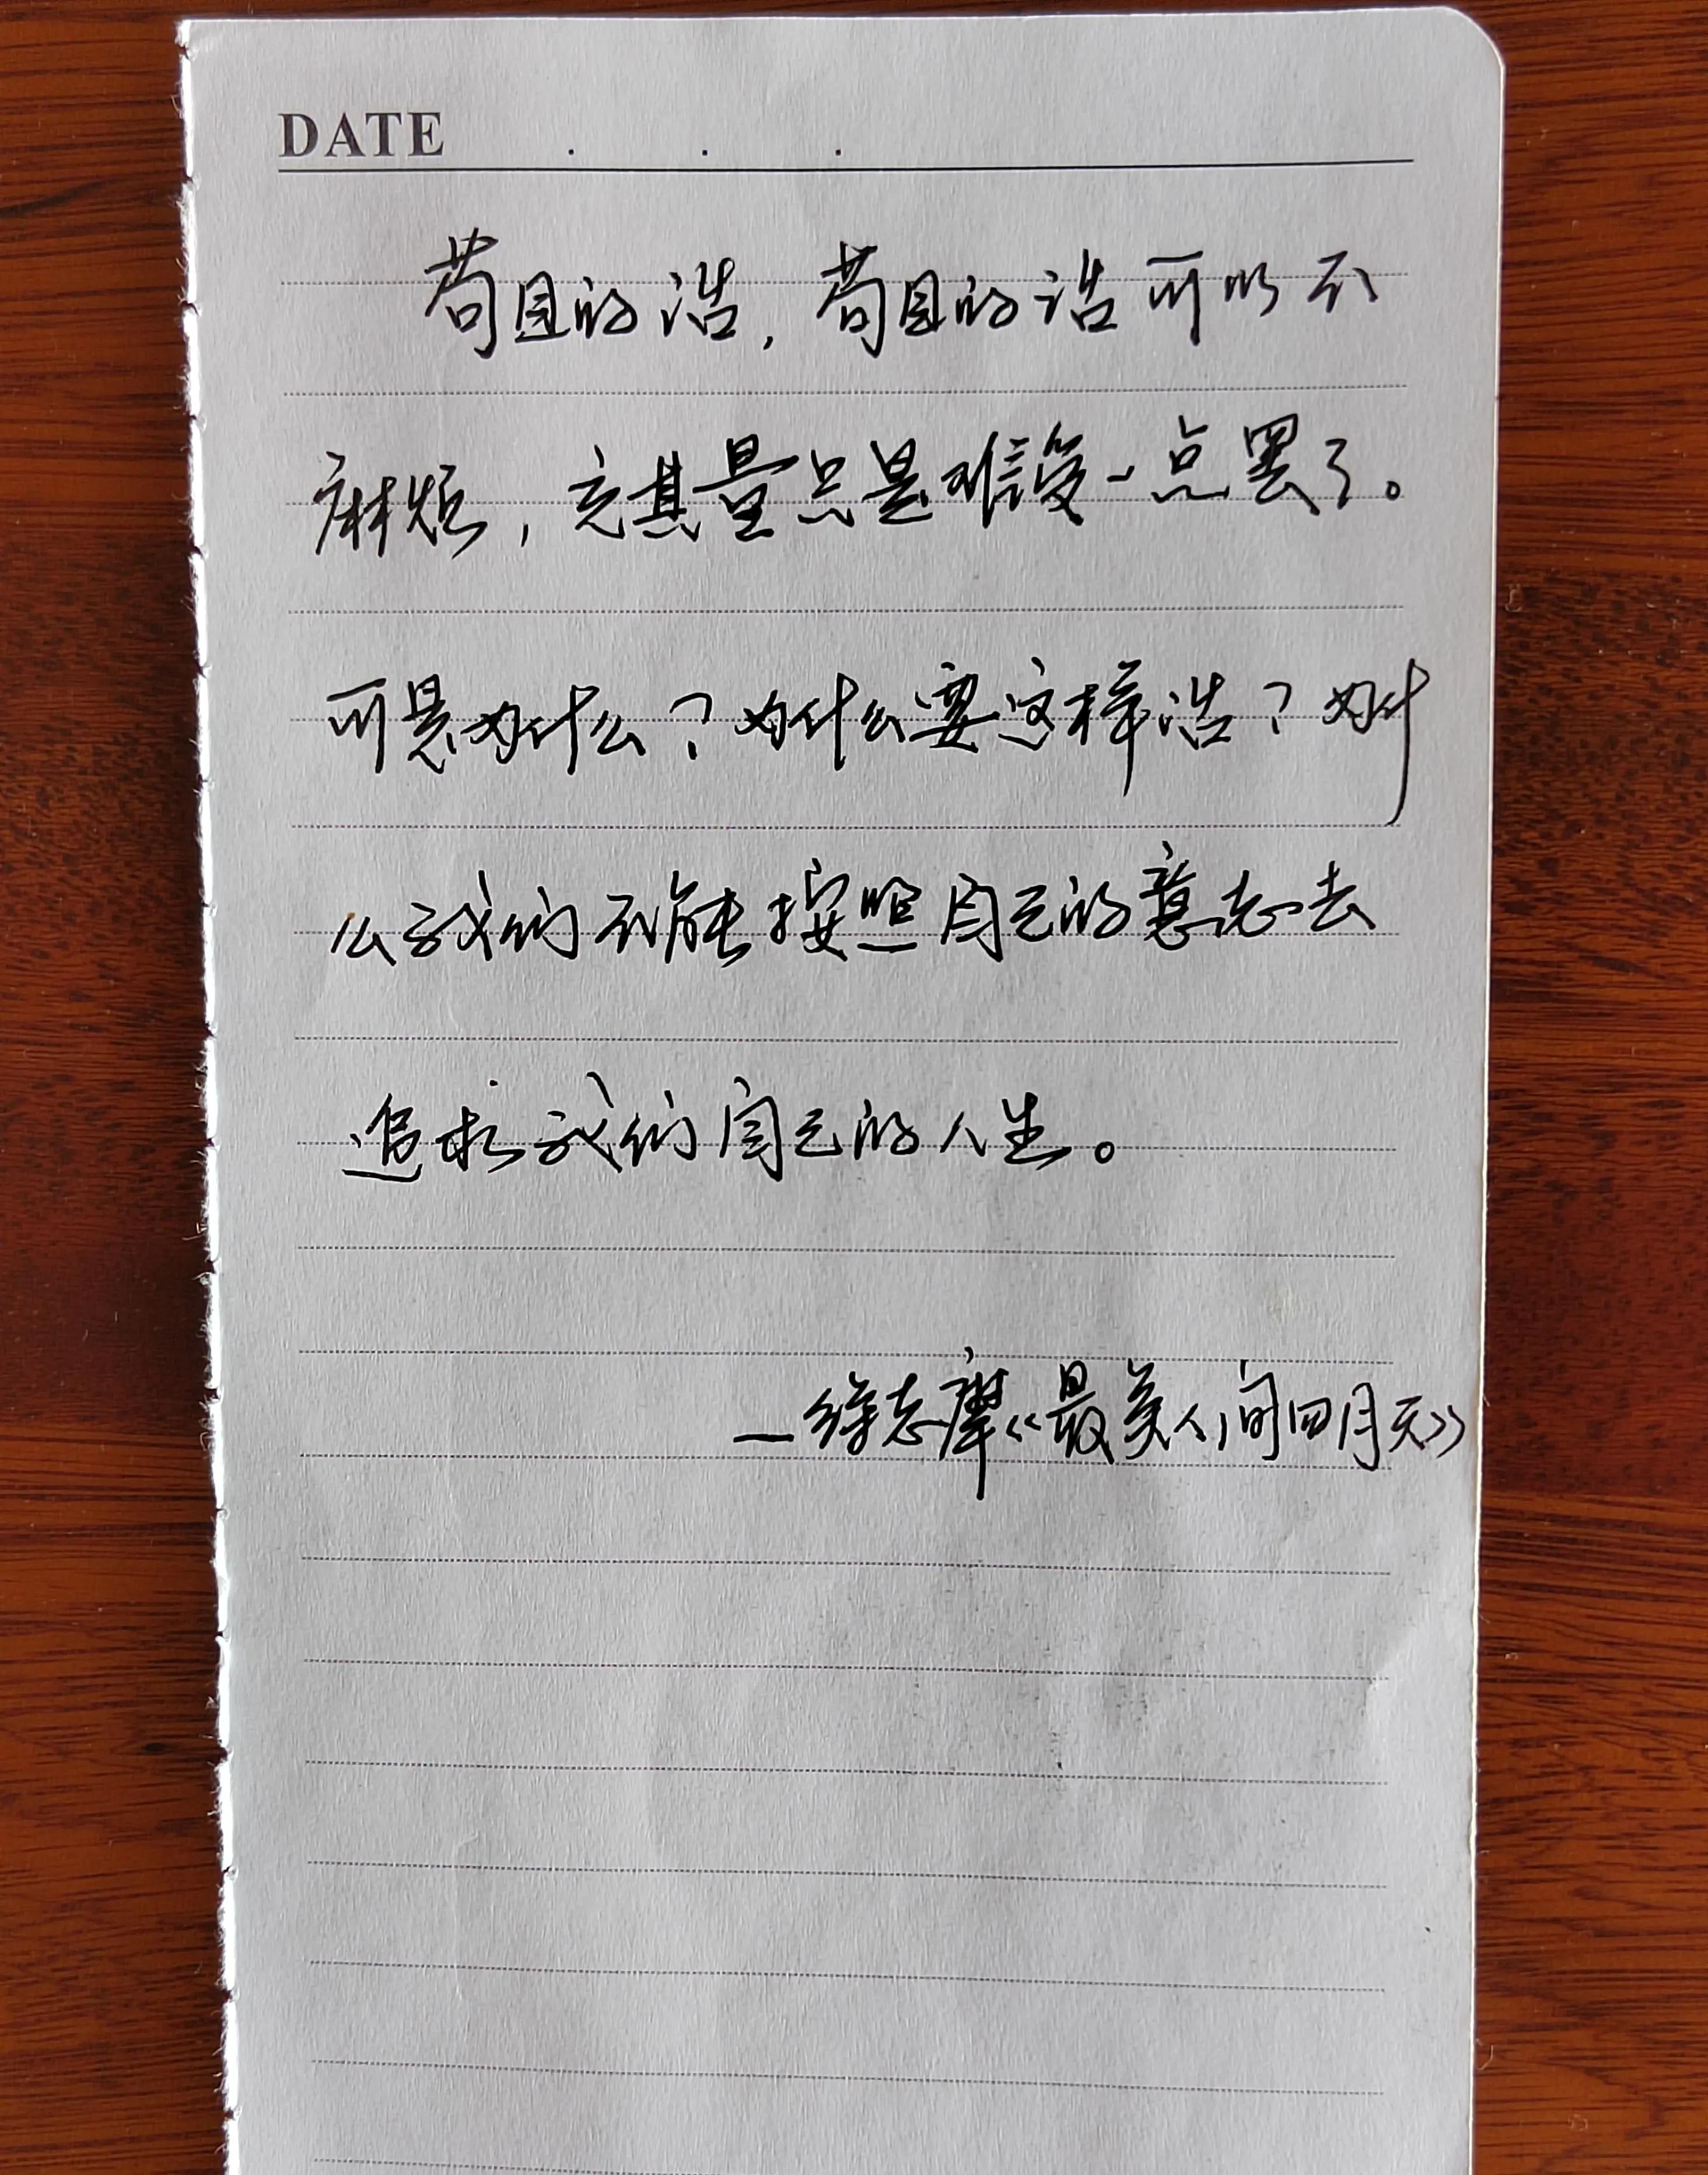 DATE . . .
苟且的活，苟且的活可以不
麻烦，充其量只是难受一点罢了。
可是为什么？为什么要这样活？为什
么我们不能按照自己的意志去
追求我们自己的人生。
—徐志摩《最美人间四月天》